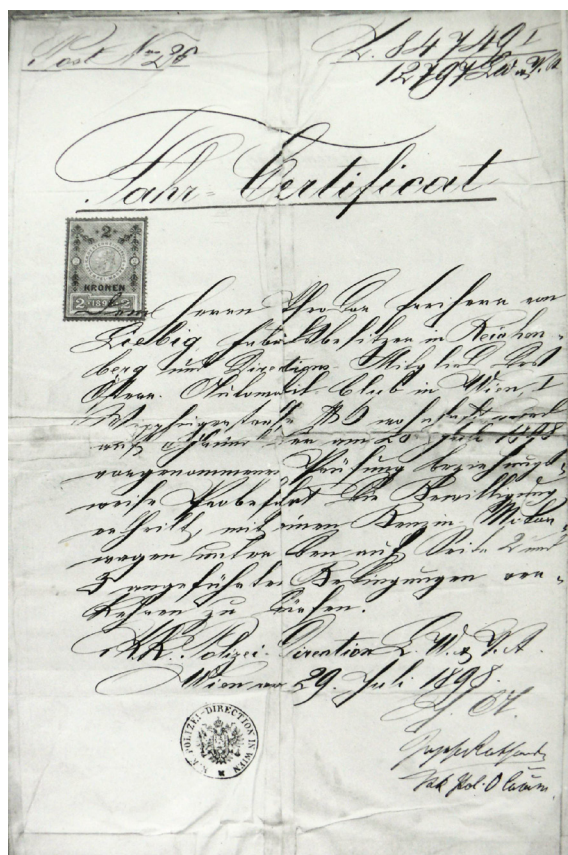 Post Nro 28
Z. 84749 I
12797
Fahr-Certificat
2
KRONEN
2 2
Dem Herrn Theodor Freiherrn von
Liebig Fabriksbesitzer in Reichen-
berg und Directions-Mitglied des
Österr. Automobil-Club in Wien, I
wohnhaft wird
auf Grund der am 20. Juli 1898
vorgenommenen Prüfung beziehungs-
weise Probefahrt die Bewilligung
ertheilt, mit einem Benzin-Motor-
wagen unter den auf Seite 2 und
3 angeführten Bedingungen ver-
kehren zu dürfen.
K.K. Polizei-Direction Z. W. & V. A.
Wien am 29. Juli 1898.
K.K. POLIZEI-DIRECTION IN WIEN